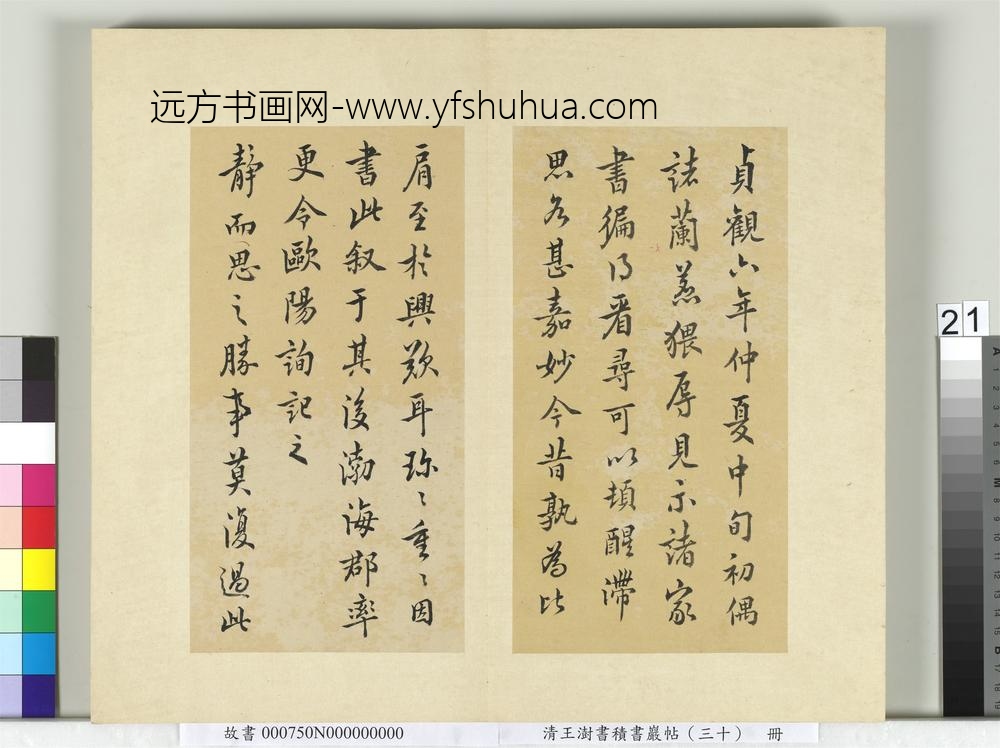 远方书画网-www.yfshuhua.com
貞觀六年仲夏中旬初偶
詣蘭惹猥辱見示諸家
書徧得看尋可以頓醒滯
思各甚嘉妙今昔孰為比
肩至於興歎耳珍〻重〻因
書此叙于其後渤海郡率
更令歐陽詢記之
靜而思之勝事莫復過此
21
故書 000750N000000000
清王澍書積書巖帖（三十） 冊